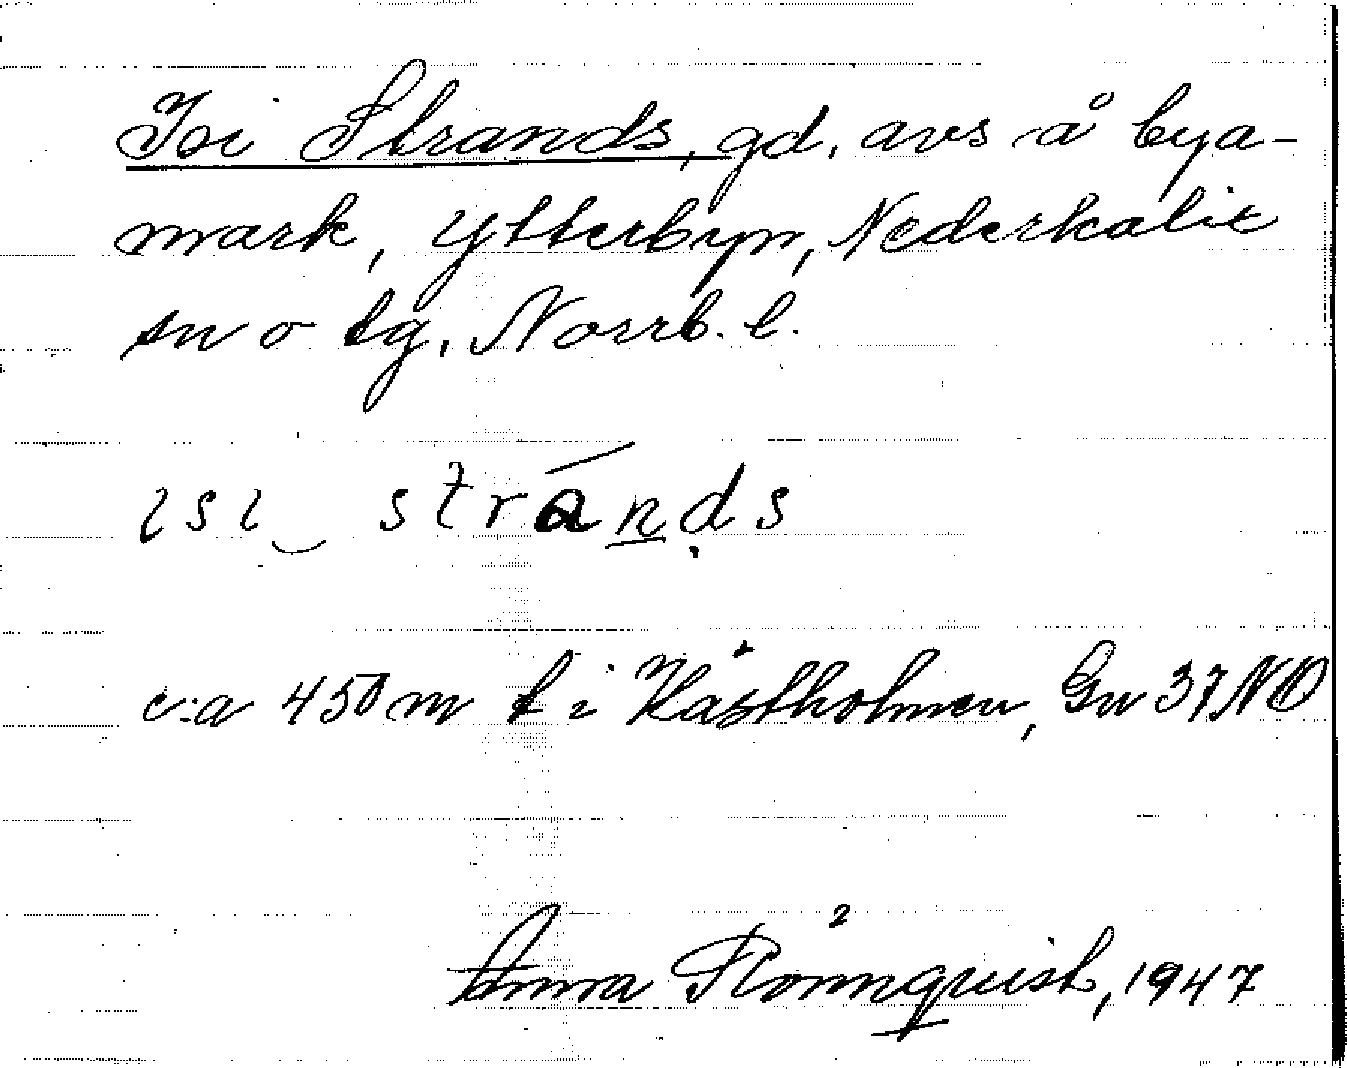 Isi Strands, gd, avs å bya-
mark, Ytterbyn, Nederkalix
sn o tg, Norrb. l.
ɩsɩ‿ stránḍs
c:a 450 m
Gn 37 NO
Anna Rönnquist, 1947